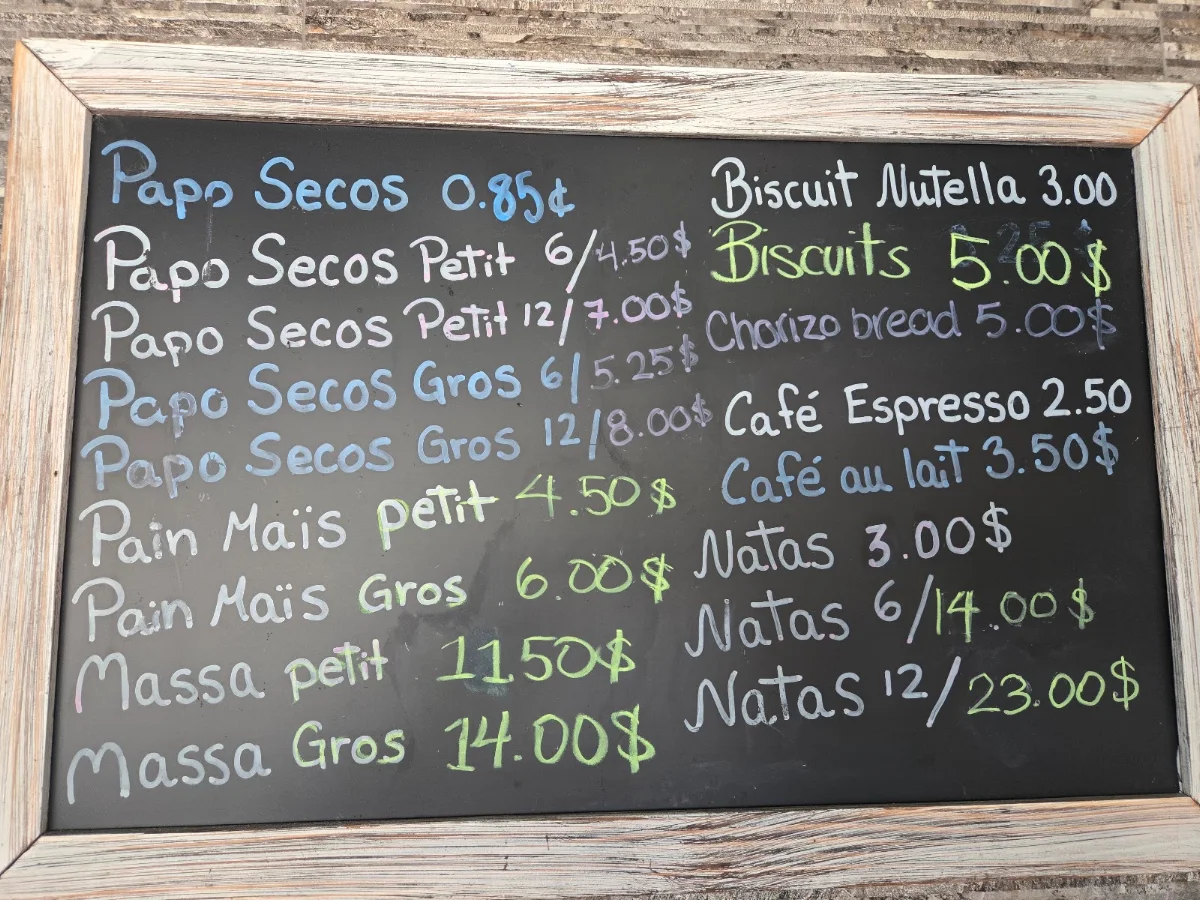 Papo Secos 0.85¢
Papo Secos Petit 6/4.50$
Papo Secos Petit 12/7.00$
Papo Secos Gros 6/5.25$
Papo Secos Gros 12/8.00$
Pain Maïs petit 4.50$
Pain Maïs Gros 6.00$
Massa petit 11.50$
Massa Gros 14.00$
Biscuit Nutella 3.00
Biscuits 5.00$
Chorizo bread 5.00$
Café Espresso 2.50
Café au lait 3.50$
Natas 3.00$
Natas 6/14.00$
Natas 12/23.00$